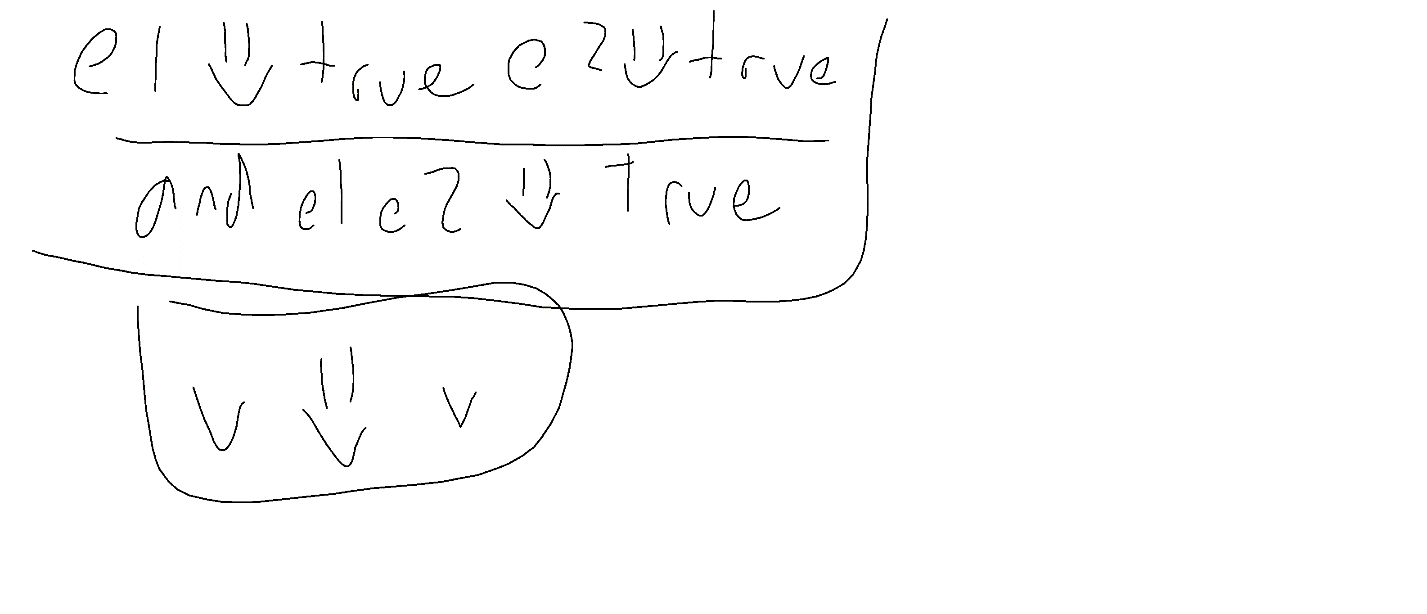 e1 ⇓ true e2 ⇓ true
and e1 e2 ⇓ true
v ⇓ v